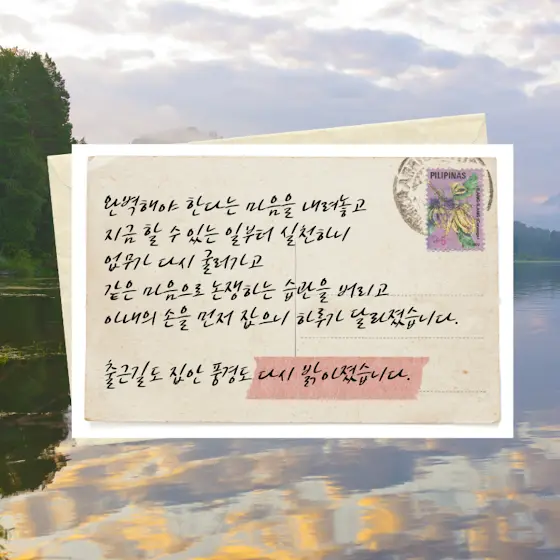 완벽해야 한다는 마음을 내려놓고
지금 할 수 있는 일부터 실천하니
업무가 다시 굴러가고
같은 마음으로 논쟁하는 습관을 버리고
아내의 손을 먼저 잡으니 하루가 달라졌습니다.
출근길도 집안 풍경도 다시 밝아졌습니다.
PILIPINAS